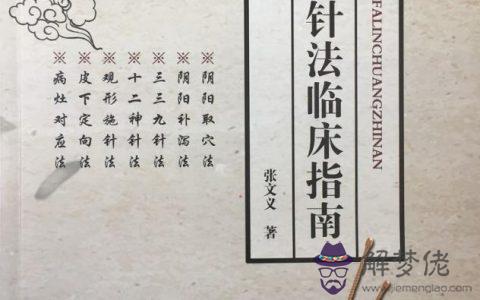 FALINCHUANGZHINAN
针法临床指南
张文义 著
※阴阳取穴法
※阴阳补泻法
※三三九针法
※十二神针法
※观形施针法
※皮下定向法
※病灶对应法
解梦佬
jiemenglao.com